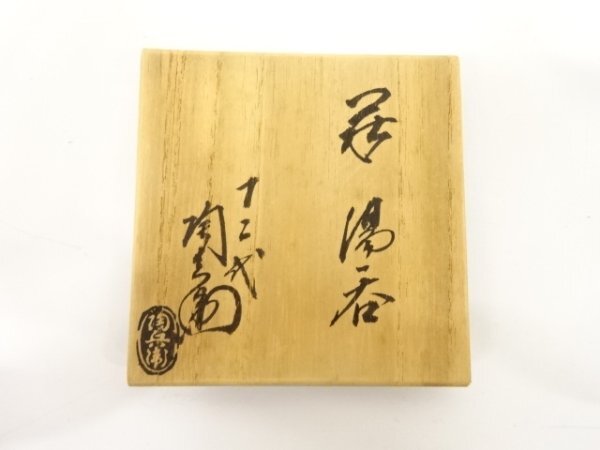 萩 湯呑
十二代
陶兵衛
陶兵衛